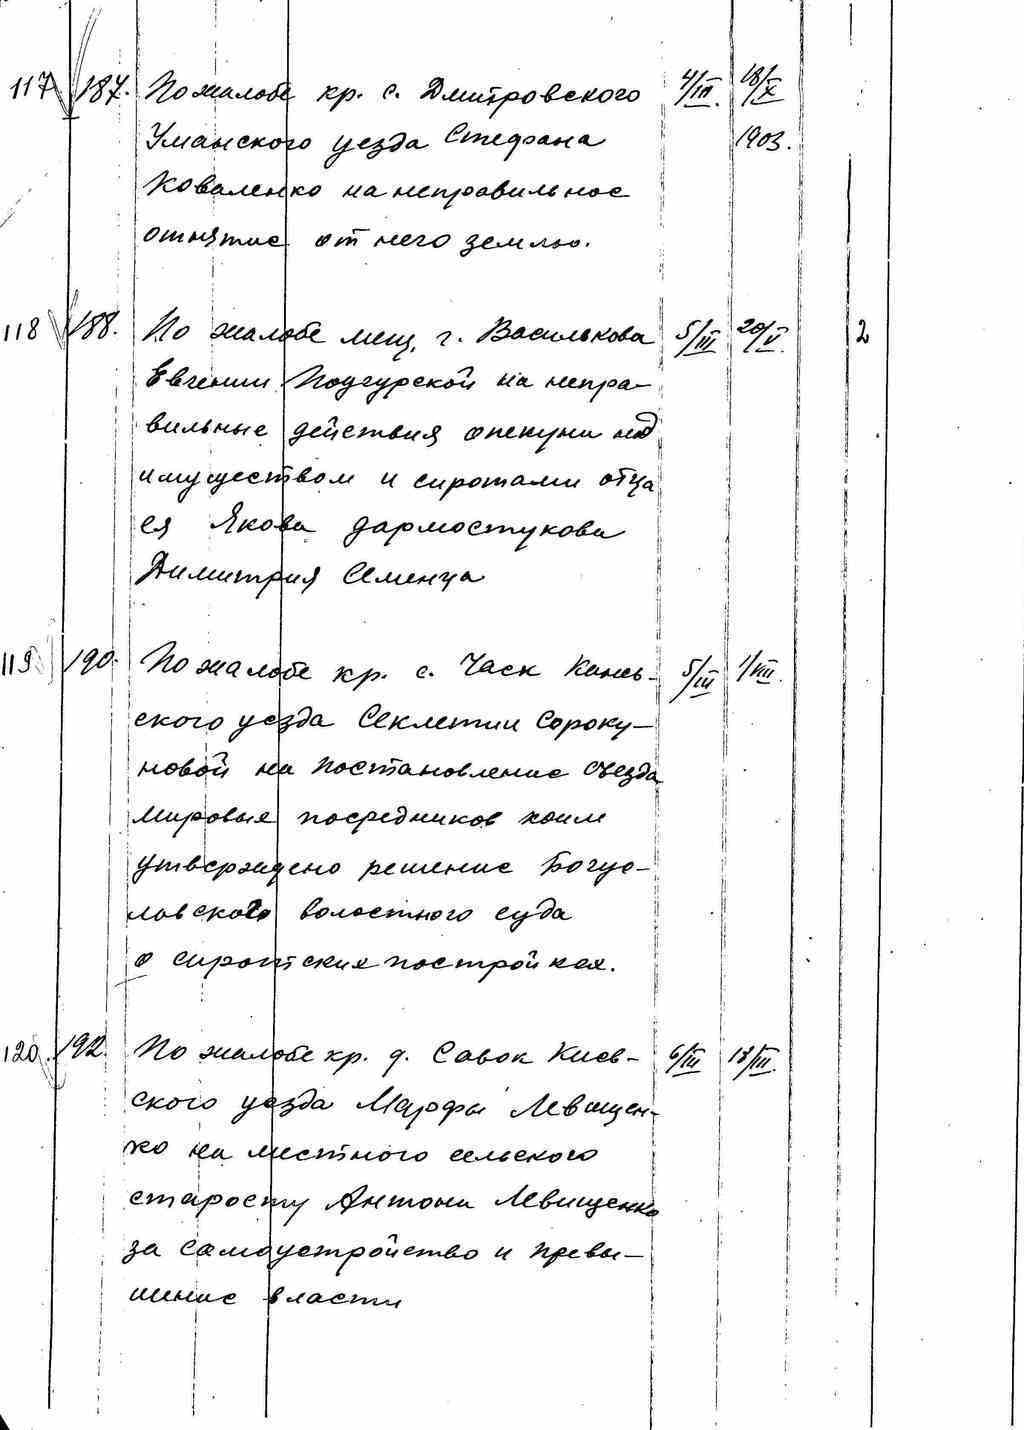 117 187. По жалобе кр. с. Дмитровского 4/III. 18/X
Уманского уезда Стефана 1903.
Коваленко на неправильное
отнятие от него землю.
118 188. По жалобе мещ. г. Василькова 5/III 20/V. 2
Евгении Подгурской на непра-
вильные действия опекуна над
имуществом и сиротами отца
ея Якова Дармостукова
Димитрия Семенца
119 190. По жалобе кр. с. Часк Канев- 5/III 1/VIII.
ского уезда Секлетии Сороку-
новой на постановление съезда
мировых посредников коим
утверждено решение Богус-
лавского волостного суда
о сиротских постройках.
120. 192. По жалобе кр. д. Савок Киев- 6/III 18/III.
ского уезда Марфы Левищен-
ко на местного сельского
старосту Антона Левищенко
за самоустройство и превы-
шение власти